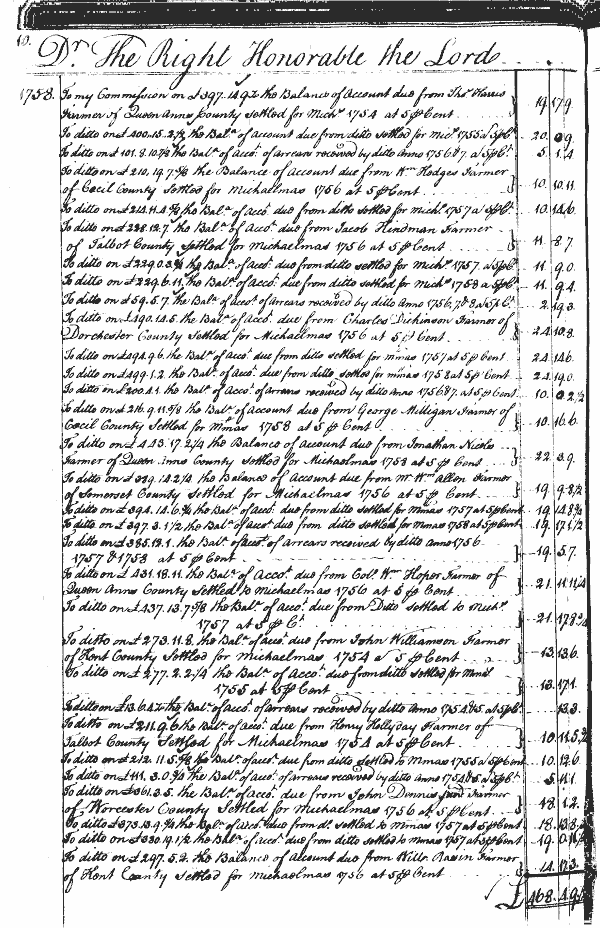 10.
Dr. The Right Honorable the Lord
1758. To my Commission on £397.14.9½ the Balance of Account due from Thos Harris
Farmer of Queen Anns County Settled for Michs 1754 at 5 p Cent 19.17.9
To ditto on £400.15.2½ the Bala. of account due from ditto Settled for Michs 1755 a 5 p Ct 20.0.9
To ditto on £101.8.10¾ the Bala. of Acct. of arrears received by ditto Anno 1756 & 7. a 5 p Ct. 5.1.4
To ditto on £210.19.7 the Balance of Account due from Wm Hodges Farmer
of Cecil County Settled for Michaelmas 1756 at 5 p Cent 10.10.11
To ditto on £214.11.4 the Bala. of Acct. due from ditto Settled for Michs 1757 a 5 p Ct. 10.14.6
To ditto on £228.12.7 the Bala. of Acct. due from Jacob Hindman Farmer
of Talbot County Settled for Michaelmas 1756 at 5 p Cent 11.8.7
To ditto on £229.0.3 the Bala. of Acct. due from ditto settled for Michs 1757. a 5 p Ct 11.9.0
To ditto on £229.6.11 the Bala. of Acct. due from ditto settled for Michs 1758 a 5 p Ct 11.9.4
To ditto on £59.5.7. the Bala. of acct. of arrears received by ditto Anno 1756, 7, & 8 a 5 p Ct. 2.19.3
To ditto on £490.14.5. the Bala. of Acct. due from Charles Dickinson Farmer of
Dorchester County Settled for Michaelmas 1756 at 5 p Cent 24.10.8
To ditto on £494.9.6 the Bala. of Acct. due from ditto settled for minas 1757 at 5 p Cent 24.14.6
To ditto on £499.1.2. the Bala. of Acct. due from ditto settled for minas 1758 at 5 p Cent 24.19.0
To ditto on £200.4.1. the Bala. of Acct. of arrears received by ditto Anno 1756 & 7. at 5 p Cent 10.0.2½
To ditto on £216.9.11 the Bala. of Account due from George Milligan Farmer of
Cecil County Settled for Mmas 1758 at 5 p Cent 10.16.6
To ditto on £443.17.2¼ the Balance of Account due from Jonathan Nicols
Farmer of Queen Anns County Settled for Michaelmas 1758 at 5 p Cent 22.3.9
To ditto on £389.14.2¼ the Balance of Account due from Mr. Wm. Allen Farmer
of Somerset County Settled for Michaelmas 1756 at 5 p Cent 19.9.8½
To ditto on £394.14.6 the Bala. of Acct. due from ditto settled for minas 1757 at 5 p Cent 19.14.8¾
To ditto on £397.3.1½ the Bala. of Acct. due from ditto settled for Mmas 1758 at 5 p Cent 19.17.1½
To ditto on £385.12.1. the Bala. of acct. of arrears received by ditto Anno 1756.
1757 & 1758 at 5 p Cent 19.5.7
To ditto on £431.18.11. the Bala. of Acct. due from Col. Wm. Hoper Farmer of
Queen Anns County Settled to Michaelmas 1756 at 5 p Cent 21.11.11¼
To ditto on £437.13.7 the Bala. of Acct. due from Ditto settled to Michs
1757 at 5 p Ct. 21.17.8
To ditto on £273.11.8. the Bala. of acct. due from John Williamson Farmer
of Kent County Settled for Michaelmas 1754 a 5 p Cent 13.13.6
To ditto on £277.2.2¼ the Bala. of Acct. due from ditto settled for Mmas
1755 at 5 p Cent 13.17.1
To ditto on £13.6.4½ the Bala. of acct. of arrears received by ditto Anno 1754 & 5 at 5 p Ct. 13.3
To ditto on £211.9.6 the Bala. of acct. due from Henry Hollyday Farmer of
Talbot County Settled for Michaelmas 1754 at 5 p Cent 10.11.5
To ditto on £212.11.5 the Bala. of acct. due from ditto settled to Mmas 1755 a 5 p Cent 10.12.6
To ditto on £111.3.0 the Bala. of Acct. of arrears received by ditto Anno 1754 & 5 a 5 p Ct. 5.11.1
To ditto on £361.3.5. the Bala. of Acct. due from John Dennis Farmer
of Worcester County Settled for Michaelmas 1756 at 5 p Cent 18.1.2
To ditto on £373.13.9 the Bala. of Acct. due from do. settled to Mmas 1757 at 5 p Cent 18.13.8
To ditto on £380.19.1½ the Bala. of Acct. due from ditto settled to Mmas 1757 at 5 p Cent 19.0.11
To ditto on £297.5.2. the Balance of Account due from Willm. Rasin Farmer
of Kent County settled for Michaelmas 1756 at 5 p Cent 14.17.3
£ 468.4.9